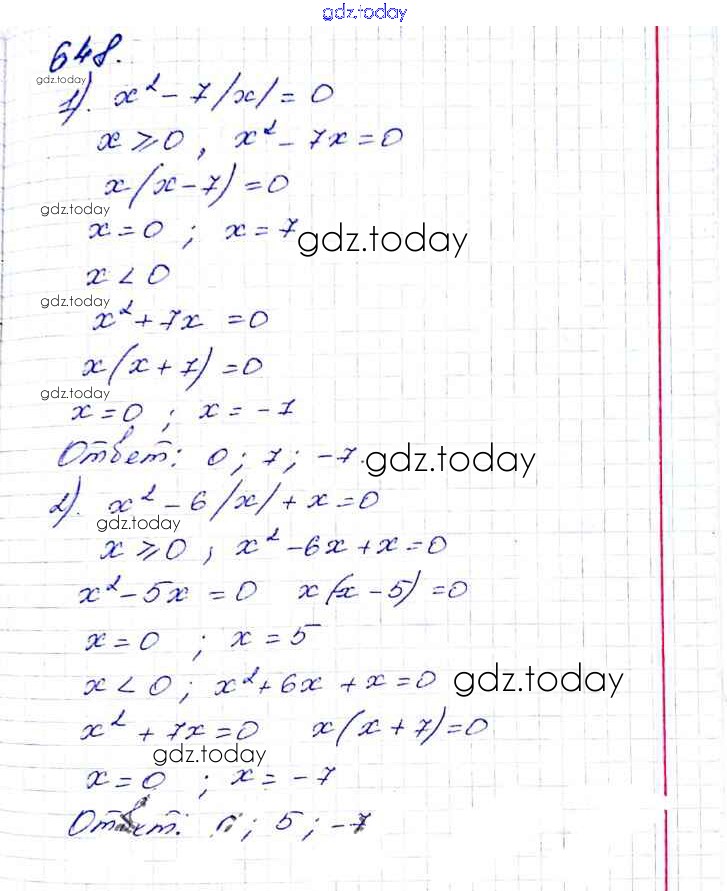 gdz.today
648.
gdz.today
1). x² - 7/x/ = 0
x ⩾ 0, x² - 7x = 0
x(x - 7) = 0
gdz.today
x = 0 ; x = 7
gdz.today
x < 0
gdz.today
x² + 7x = 0
x(x + 7) = 0
gdz.today
x = 0 ; x = -7
Ответ: 0; 7; -7.
gdz.today
2). x² - 6/x/ + x = 0
gdz.today
x ⩾ 0, x² - 6x + x = 0
x² - 5x = 0 x(x - 5) = 0
x = 0 ; x = 5
x < 0; x² + 6x + x = 0
gdz.today
x² + 7x = 0 x(x + 7) = 0
gdz.today
x = 0 ; x = -7
Ответ: 0; 5; -7